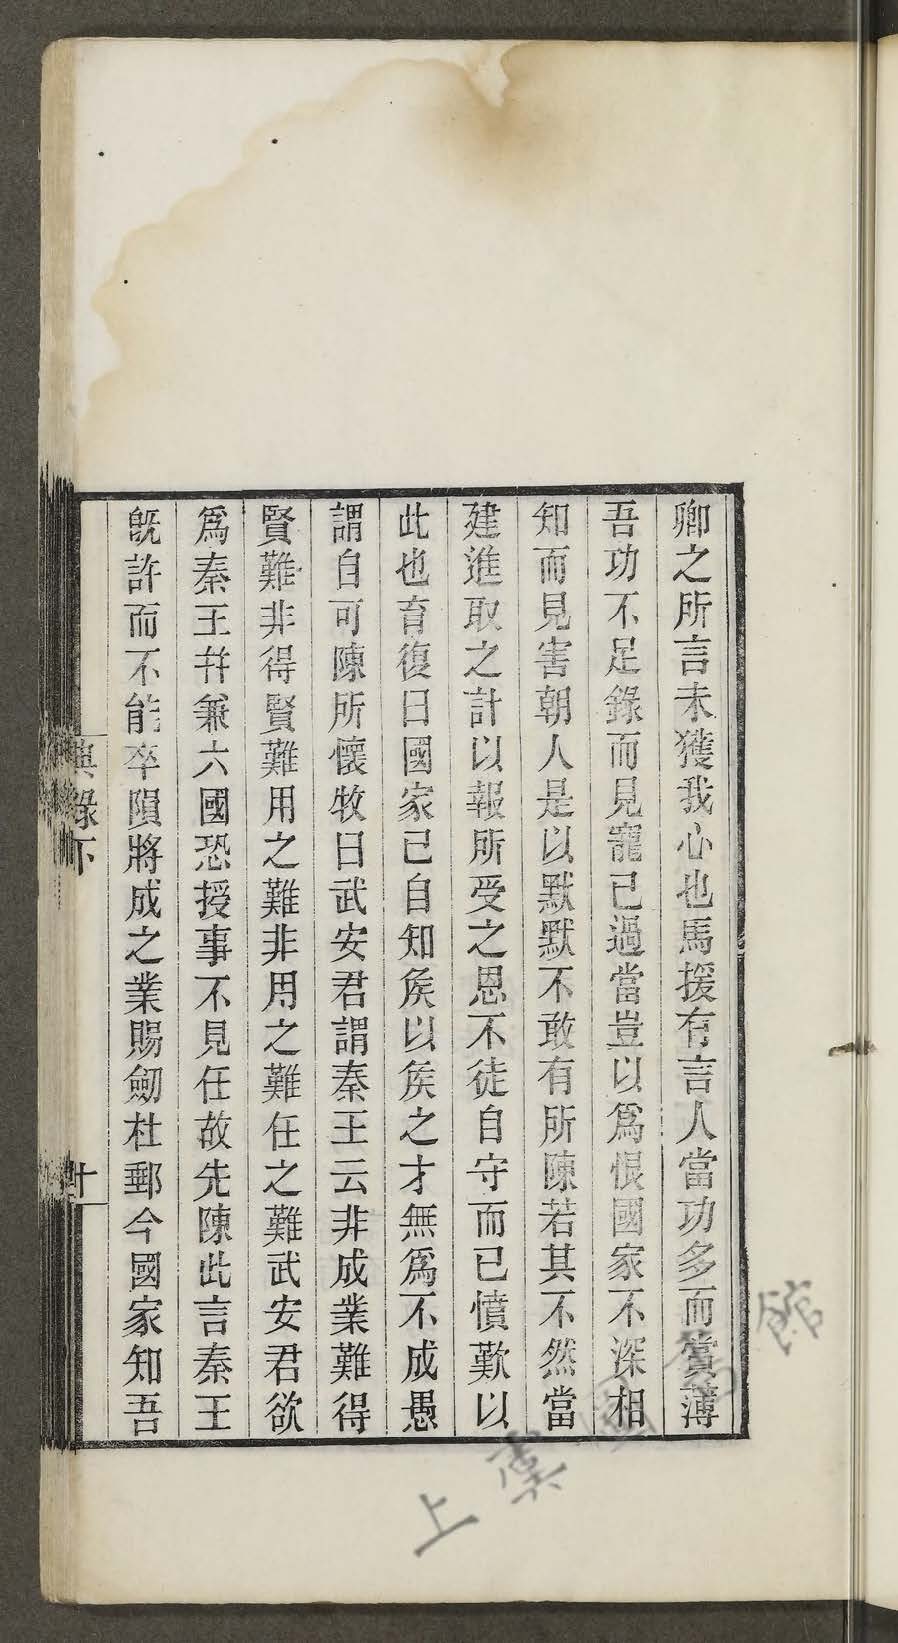 卿之所言未獲我心也馬援有言人當功多而賞薄
吾功不足錄而見寵已過當豈以爲恨國家不深相
知而見害朝人是以默默不敢有所陳若其不然當
建進取之計以報所受之恩不徒自守而已憤歎以
此也育復曰國家已自知矦以矦之才無爲不成愚
謂自可陳所懷牧曰武安君謂秦王云非成業難得
賢難非得賢難用之難非用之難任之難武安君欲
爲秦王幷兼六國恐授事不見任故先陳此言秦王
旣許而不能卒隕將成之業賜劒杜郵今國家知吾
典錄下
十
上虞圖書館